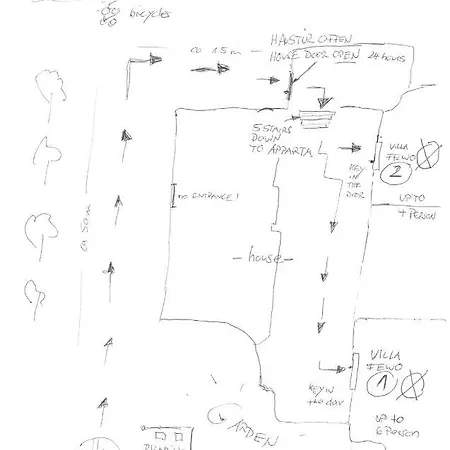 bicycles
ca 15m
HAUSTÜR OFFEN
HOUSE DOOR OPEN 24 hours
5 STAIRS
DOWN
TO APPARTM.
KEY
IN
THE
DOOR
VILLA
FEWO
2
UP TO
PERSON
NO ENTRANCE!
ca 50m
- house -
VILLA
FEWO
1
KEY IN
the door
up to
6 Person